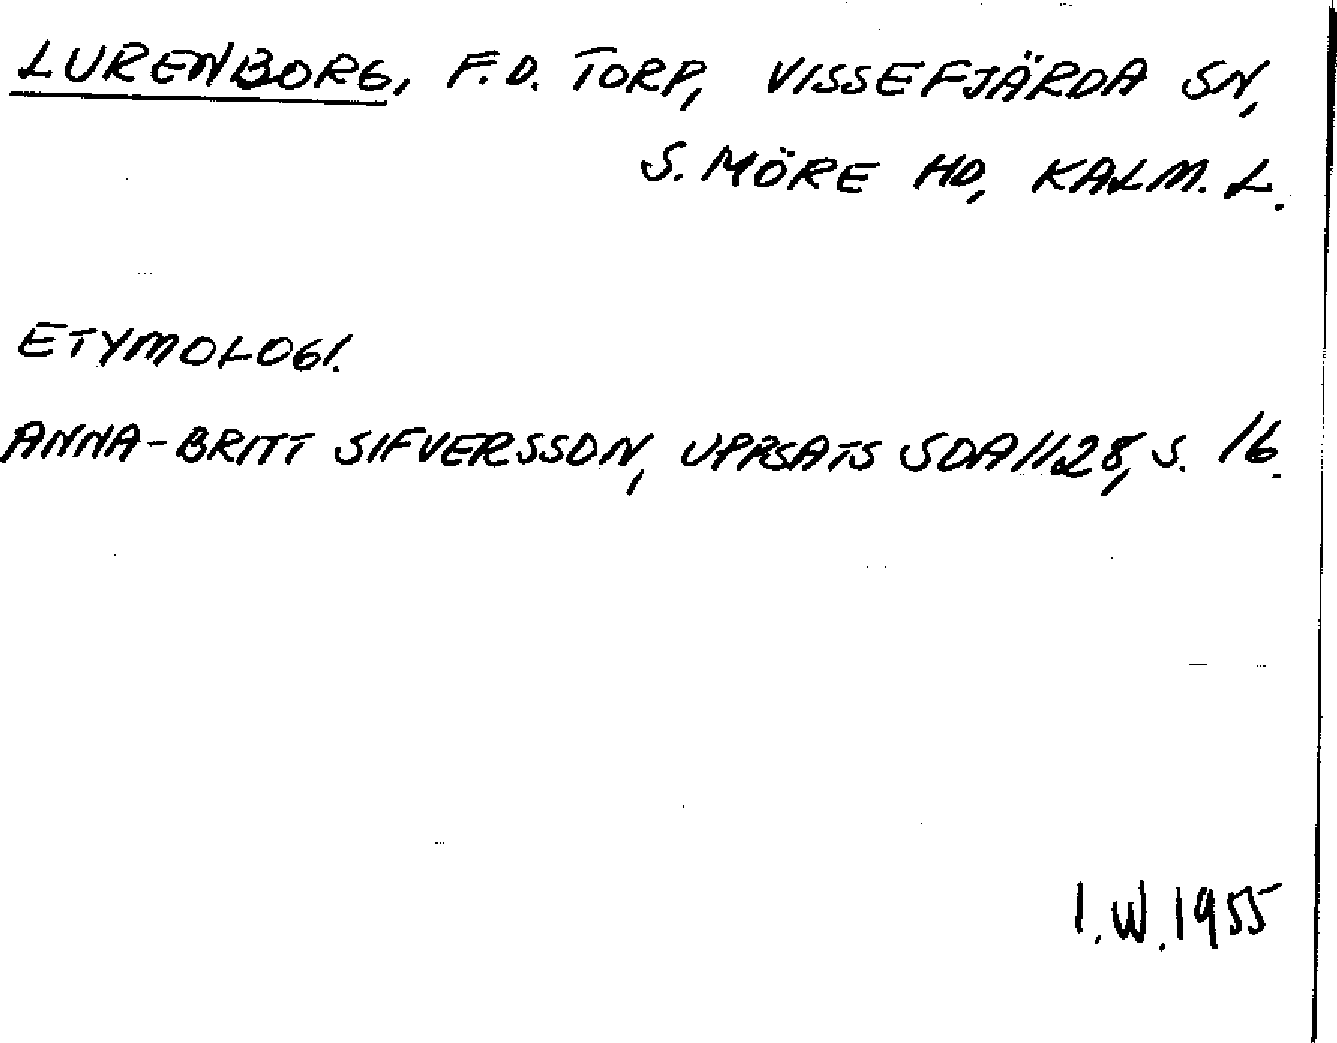 LURENBORG, F.D. TORP, VISSEFJÄRDA SN,
S. MÖRE HD, KALM. L.
ETYMOLOGI.
ANNA-BRITT SIFVERSSON, UPPSATS SOA 1128, S. 16.
I.W. 1955